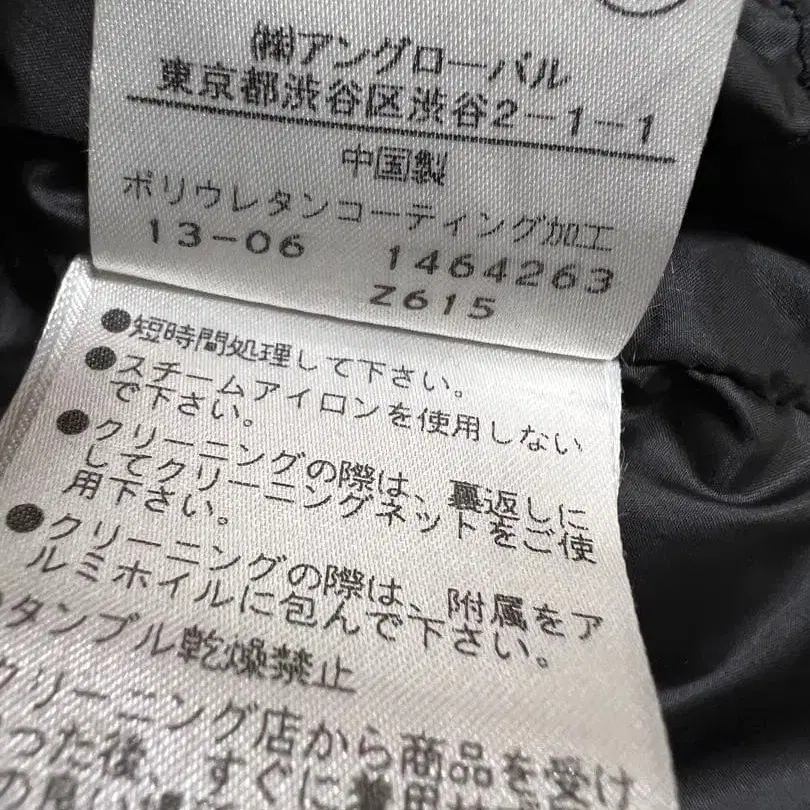 ㈱アングローバル
東京都渋谷区渋谷2-1-1
中国製
ポリウレタンコーティング加工
13-06 1464263
Z615
●短時間処理して下さい。
●スチームアイロンを使用しない
で下さい。
●クリーニングの際は、裏返しに
してクリーニングネットをご使
用下さい。
●クリーニングの際は、附属をア
ルミホイルに包んで下さい。
タンブル乾燥禁止
クリーニング店から商品を受け
った後、すぐに着用